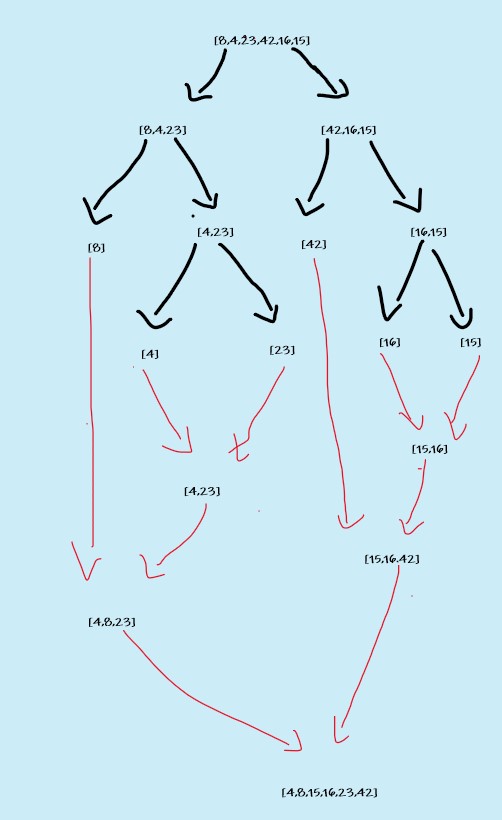 [8,4,23,42,16,15]
[8,4,23]
[42,16,15]
[8]
[4,23]
[42]
[16,15]
[4]
[23]
[16]
[15]
[15,16]
[4,23]
[15,16,42]
[4,8,23]
[4,8,15,16,23,42]